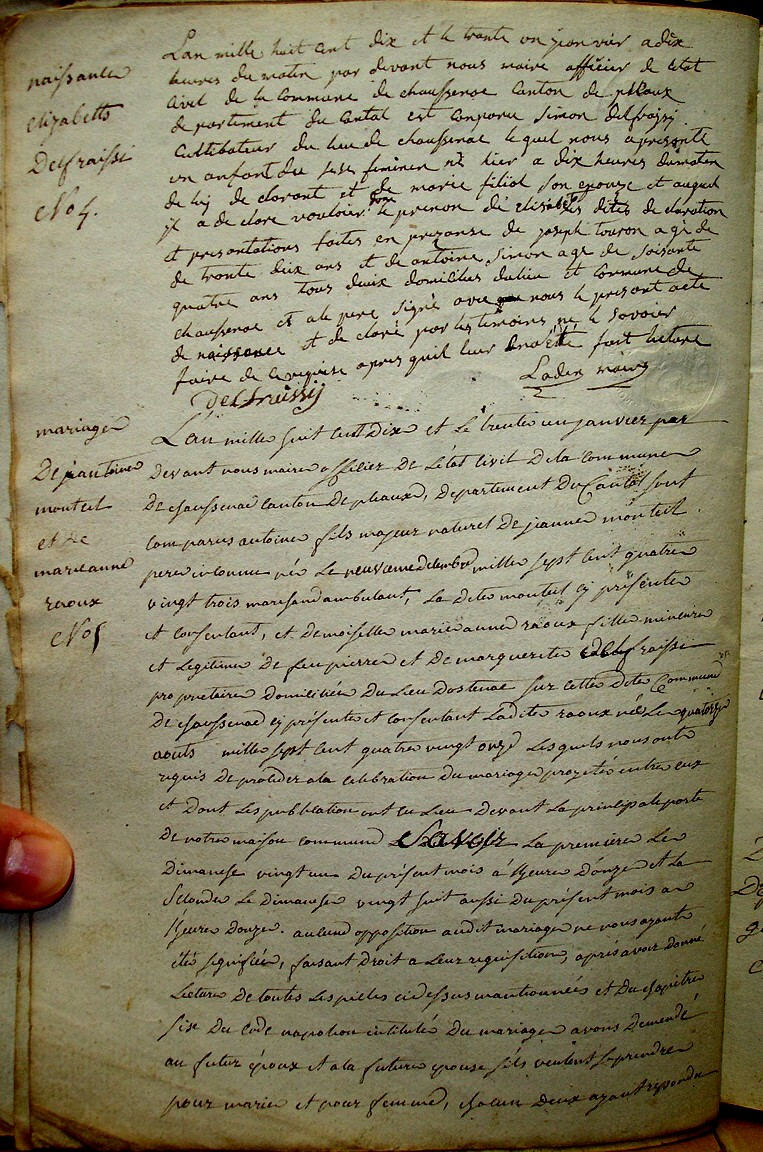 naissance
elizabette
Delfraissi
No 4.
Lan mille huit cent dix et le trante un janvier a dix
heures du matin par devant nous maire officier de letat
civil de la Commune de chaussenac Canton de pleaux
departement du Cantal est conparu simon delfraissi
Cultibateur du lieu de chaussenac lequel nous a presante
un anfant du sexe feminen né hier a dix heures du maten
de luj de clarant et de marie filiol son epouze et auquel
jl a de clare vouloir don le prenon de elisabete les dites de claration
et presantations faites en prezanse de joseph touron age de
de trante deux ans et de antoine simon age de soisante
quatre ans tous deux domicilies du lieu et commune de
chaussenac et a le pere signé avec nous le present acte
de naissance et de claré par les temoins ne le savoier
faire de ce requise apres quil leur an a été fait lecture
delfraissij
Lader maire
mariage
De antoine
monteil
et de
marieanne
raoux
No 5
L'an mille huit cent Dix et le trente un janvier par
devant nous maire officier De L'état Civil De la commune
De chaussenac canton De pleaux, Departement Du Cantal sont
comparus antoine fils majeur naturel De jeanne monteil
pere inconnu née Le neuvieme decembre mille sept cent quatre
vingt trois marchand ambulant, La Dite monteil cy présente
et consentant, et Demoiselle marie anne raoux fille mineure
et Legitime De feu pierre et De marguerite delfraissi
proprietaire Domiciliée Du Lieu Dostenac sur cette Dite Commune
De chaussenac cy présente et consentant Ladite raoux née Le quatorze
aouts mille sept cent quatre vingt onze Lesquels nous ont
requis De proceder a la celebration Du mariage projeté entre eux
et Dont Les publication ont eu Lieu Devant La principale porte
De notre maison commune Savoir La premiere Le
Dimanche vingt un Du présent mois à Heure Donze et La
Seconde Le Dimanche vingt huit aussi Du présent mois a
Heure Donze. aucune opposition audit mariage ne nous ayant
été signifiée, faisant Droit a Leur requisition, après avoir Donné
Lecture De toutes Les pieces cidessus mantionnées et Du chapitre
six Du Code napoleon intitulé Du mariage avons Demendé
au futur époux et a la future épouse s'ils veulent se prendre
pour marie et pour femme, chacun Deux ayant repondu